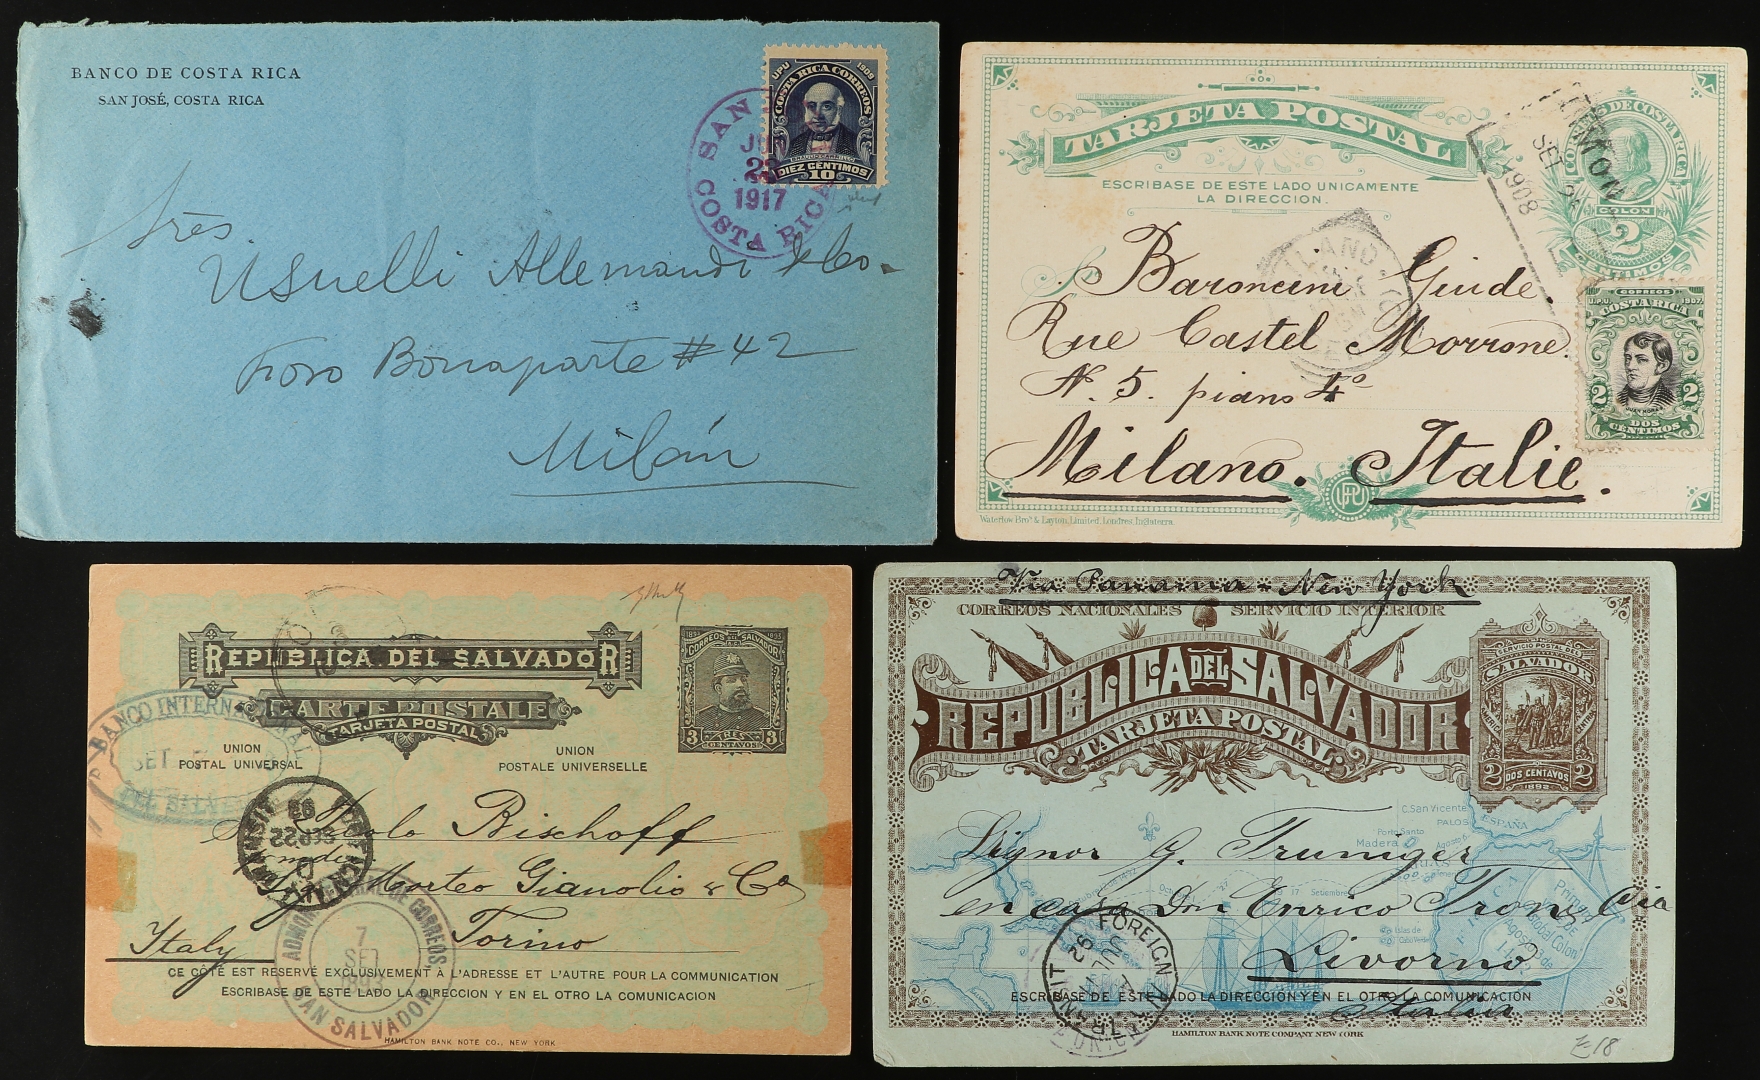 BANCO DE COSTA RICA
SAN JOSÉ, COSTA RICA
UPU 1909
COSTA RICA CORREOS
BRAULIO CARRILLO
DIEZ CENTIMOS
10
SAN
23
1917
COSTA RICA
Sres.
Usuelli Allemandi & Co.
Foro Bonaparte # 42
Milán
TARJETA POSTAL
ESCRIBASE DE ESTE LADO UNICAMENTE
LA DIRECCION.
DE COSTA RICA
COLON
2
CENTIMOS
LIMON
SET
1908
CORREOS
U.P.U. 1907.
COSTA RICA
2 2
JUAN MORA
DOS
CÉNTIMOS
Baroncini Guide.
Rue Castel Morrone.
N. 5. piano 4°
Milano. Italie.
UPU
Waterlow Bros. & Layton, Limited, Londres, Inglaterra.
REPUBLICA DEL SALVADOR
CARTE POSTALE
TARJETA POSTAL
1893 1893
CORREOS DEL SALVADOR
3 TRES 3
CENTAVOS
UNION
POSTAL UNIVERSAL
UNION
POSTALE UNIVERSELLE
BANCO INTERNACIONAL
SET
DEL SALVADOR
TRANSIT
93
22
D
Paolo Bischoff
Morteo Gianolio & Co
Torino
Italy
ADMON GENERAL DE CORREOS,
7
SET
893
SAN SALVADOR
CE CÔTÉ EST RESERVÉ EXCLUSIVEMENT À L'ADRESSE ET L'AUTRE POUR LA COMMUNICATION
ESCRIBASE DE ESTE LADO LA DIRECCION Y EN EL OTRO LA COMUNICACION
HAMILTON BANK NOTE CO., NEW YORK
Via Panama - New York
CORREOS NACIONALES SERVICIO INTERIOR
REPUBLICA DEL SALVADOR
TARJETA POSTAL
SERVICIO POSTAL DEL
SALVADOR
2 DOS CENTAVOS 2
1892
C. San Vicente
PALOS
ESPAÑA
Porto Santo
Madera
Signor G. Trumiger
en casa Don Enrico Tron & Cia
Livorno
Italia
Islas de
Cabo Verde
FOREIGN
TRANSIT
26
ESCRIBASE DE ESTE LADO LA DIRECCION Y EN EL OTRO LA COMUNICACION
HAMILTON BANK NOTE COMPANY NEW YORK
E-18